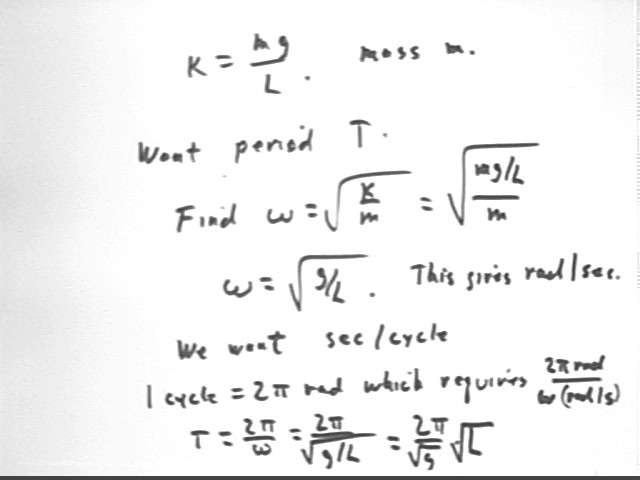 K = mg/L. mass m.
Want period T.
Find ω = √(K/m) = √((mg/L)/m)
ω = √(g/L). This gives rad/sec.
We want sec/cycle
1 cycle = 2π rad which requires 2π rad/ω(rad/s)
T = 2π/ω = 2π/√(g/L) = 2π/√g √L